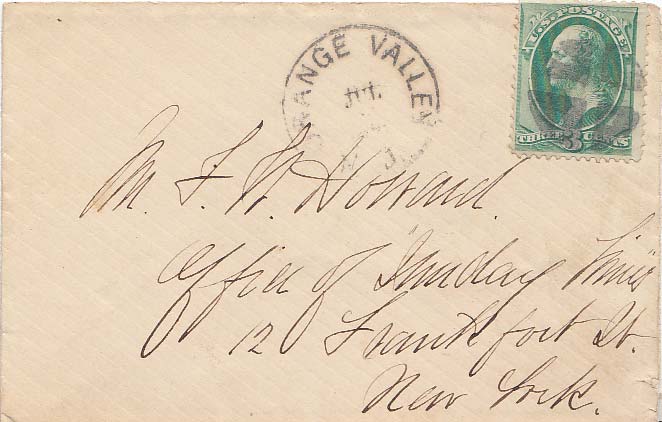 U.S. POSTAGE
THREE 3 CENTS
ORANGE VALLEY
JUL
N J
Mr. F. W. Howard.
Office of "Sunday Times"
12 Frankfort St.
New York.